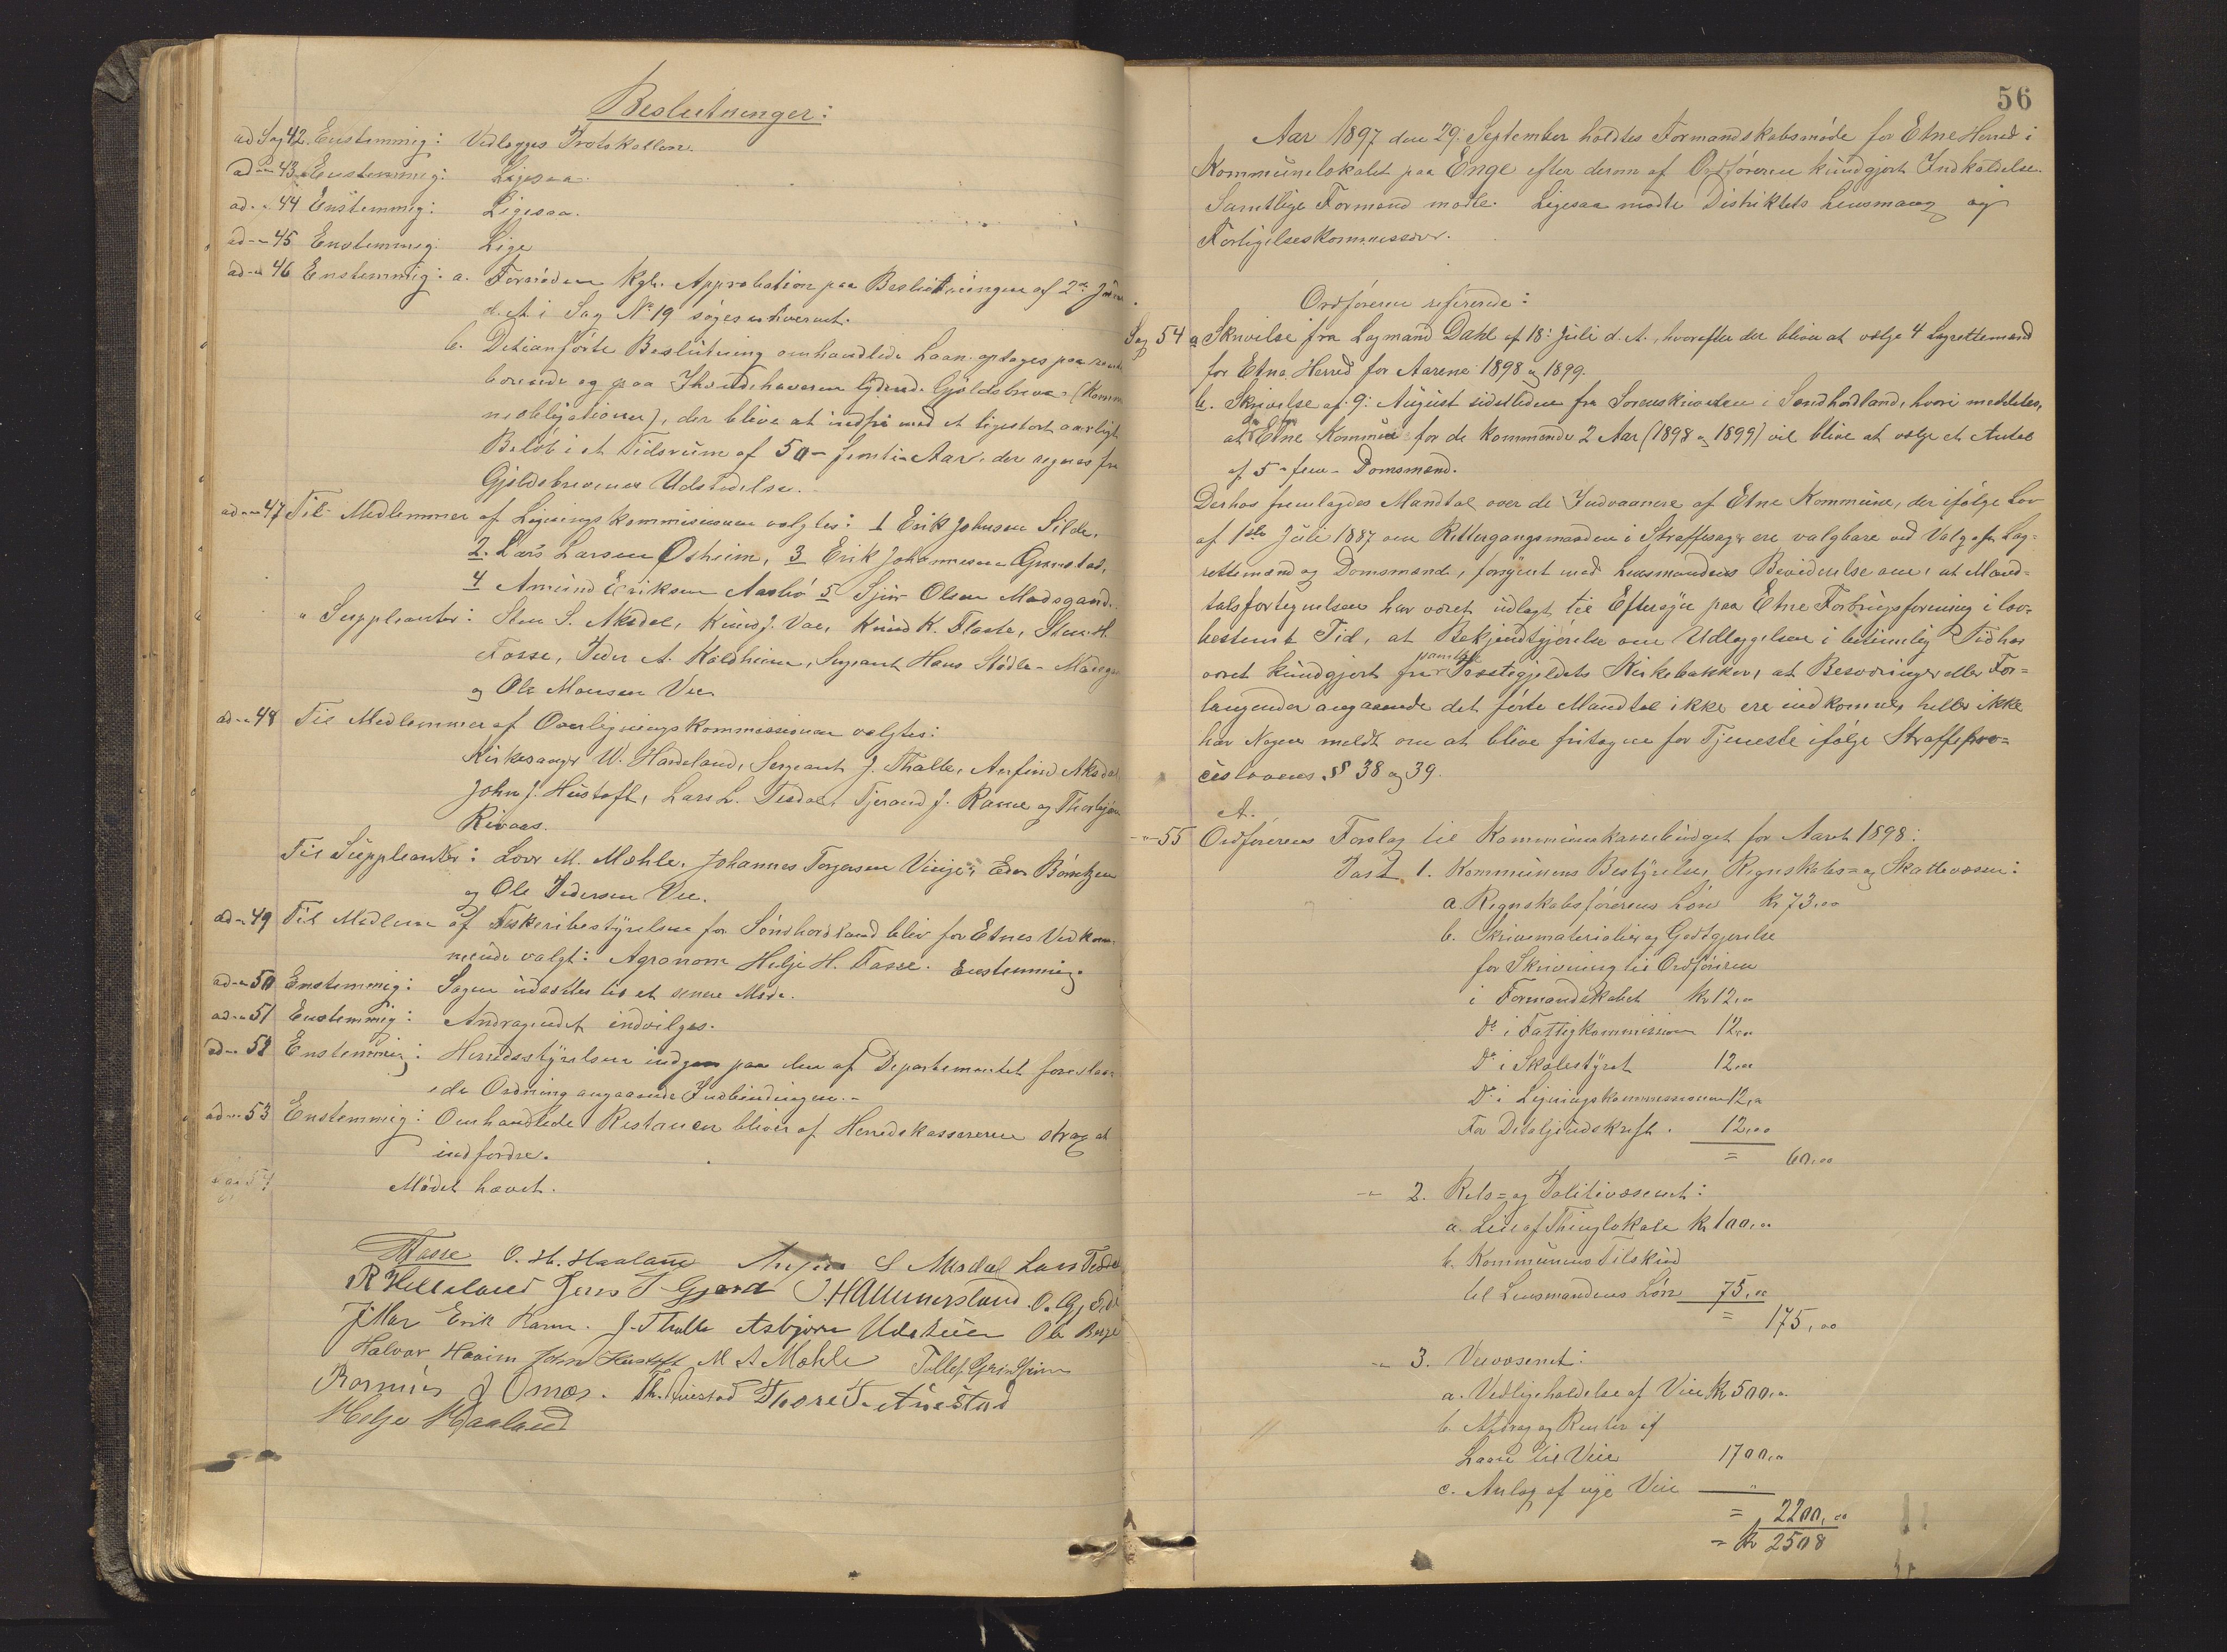 Beslutninger:
ad Sag 42. Enstemmig: Vedlægges Protokollen.
ad -"- 43. Enstemmig: Ligesaa.
ad -"- 44 Enstemmig: Ligesaa.
ad -"- 45 Enstemmig: Lige
ad -"- 46 Enstemmig: a. Fornøden Kgl. Approbation paa Beslutningen af 2den
d. A. i Sag No 19 søges erhvervet.
b. Detianførte Beslutning omhandlede Laan optages paa rente
bærende og paa Ihændehaveren lydende Gjældsbreve (Kommu
neobligationer), der blive at indfri med et ligestort aarligt
Beløb i et Tidsrum af 50 - femti - Aar, der regnes fra
Gjældsbrevenes Udstedelse.
ad -"- 47 Til Medlemmer af Ligningskommissionen valgtes: 1 Erik Johnsen Silde,
2. Lars Larsen Osheim, 3 Erik Johannesen Grønstad,
4 Amund Eriksen Aasbø 5 Sjur Olsen Mødsgand.
" Suppleanter: Sten S. Aksdal, Knud J. Vae, Knud K. Flaate, Sten H.
Fosse, Peder A. Kaldheim, Sergeant Hans Stødle-
og Ole Monsen Vee
ad -"- 48 Til Medlemmer af Overligningskommissionen valgtes:
Kirkesanger W. Hardeland, Sergeant J. Thalle, Anfind Aksdal
John J. Hustoft, Lars L. Tesdal, Tjerand J. Rame og Thorbjørn
Rivaas.
Til Suppleanter: Lovr M. Mæhle, Johannes Torgersen Vinje,
og Ole Pedersen Vee.
ad -"- 49 Til Medlem af Fiskeribestyrelsen for Søndhordland blev for Etnes Vedkom
mende valgt: Agronom Helje H. Fosse. Enstemmig.
ad -"- 50 Enstemmig: Sagen udsættes til et senere Møde.
ad -"- 51 Enstemmig: Andragendet indvilges.
ad -"- 52 Enstemmig: Herredsstyrelsen indgaar paa den af Departementet foreslaa
ede Ordning angaaende Indbindingen.-
ad -"- 53 Enstemmig: Omhandlede Restancer bliver af Herredskassereren strax at
indfordre.
Mødet hævet.
Fosse O. H. Haaland S Aksdal Lars Tesdal
R Helleland Jens T Gjerd J. Hammersland.
J Mar Erik Rame. J. Thalle Asbjørn Ole Berge
Halvor Haaim John Hustoft M A Mæhle Tollef Grindheim
Rasmus J Omas. Th. Tore Ånestad
Helje Haaland
56
Aar 1897 den 29. September holdtes Formandskabsmøde for Etne Herred i
Kommunelokalet paa Enge efter derom af Ordføreren kundgjort Indkaldelse.
Samtlige Formænd mødte. Ligesaa mødte Distriktets Lensmand og
Forligelseskommissær.
Ordføreren refererede:
Sag 54 a Skrivelse fra Lagmand Dahl af 18: Juli d. A., hvorefter der bliver at vælge 4 Lagrettemænd
for Etne Herred for Aarene 1898 og 1899.
b. Skrivelse af 9: August sidstleden fra Sorenskriveren i Søndhordland, hvori meddeles,
at Etne Kommune for de kommende 2 Aar (1898 og 1899) vil blive at vælge et Antal
af 5 - fem - Domsmænd.
Derhos fremlagdes Mandtal over de Indvaanere af Etne Kommune, der ifølge Lov
af 1ste Juli 1887 om Rettergangsmaaden i Straffesager ere valgbare ved Valg af Lag-
rettemænd og Domsmænd, forsynt med Lensmandens Bevidnelse om, at Mand-
talsfortegnelsen har været udlagt til Eftersyn paa Etne Forbrugsforening i lov-
bestemt Tid, at Bekjendtgjørelse om Udlæggelsen i betimelig Tid har
været kundgjort fra samtlige Præstegjeldets Kirkebakker, at Besværinger eller For-
langender angaaende det førte Mandtal ikke ere indkomne, heller ikke
har Nogen meldt om at blive fritagen for Tjeneste ifølge Straffepro-
ceslovens §§ 38 og 39.
A.
-"- 55 Ordførerens Forslag til Kommunekassebudget for Aaret 1898:
Post 1. Kommunens Bestyrelse, Regnskabs- og Skattevæsen:
a. Regnskabsførerens Løn kr 73,00
b. Skrivematerialier og Godtgjørelse
for Skrivning til Ordføreren
i Formandskabet kr 12,00
Do i Fattigkommissionen 12,00
Do i Skolestyret 12,00
Do i Ligningskommissionen 12,00
For Detaljeudskrift. 12,00
= 60,00
-"- 2. Rets- og Politivæsenet:
a. Leie af Thinglokale kr 100,00
b. Kommunens Tilskud
til Lensmandens Løn 75,00
= 175,00
-"- 3. Veivæsenet:
a. Vedligeholdelse af Veie kr 500,00
b. Afdrag og Renter af
Laan til Veie 1700,00
c. Anlæg af nye Veie "
= 2200,00
= kr 2508